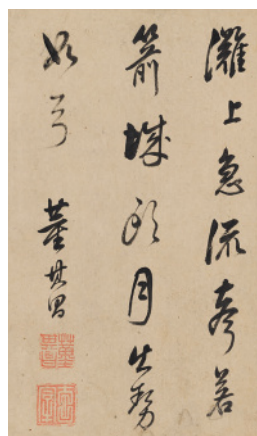 灘上急流聲若
箭城頭月出勢
如弓
董其昌